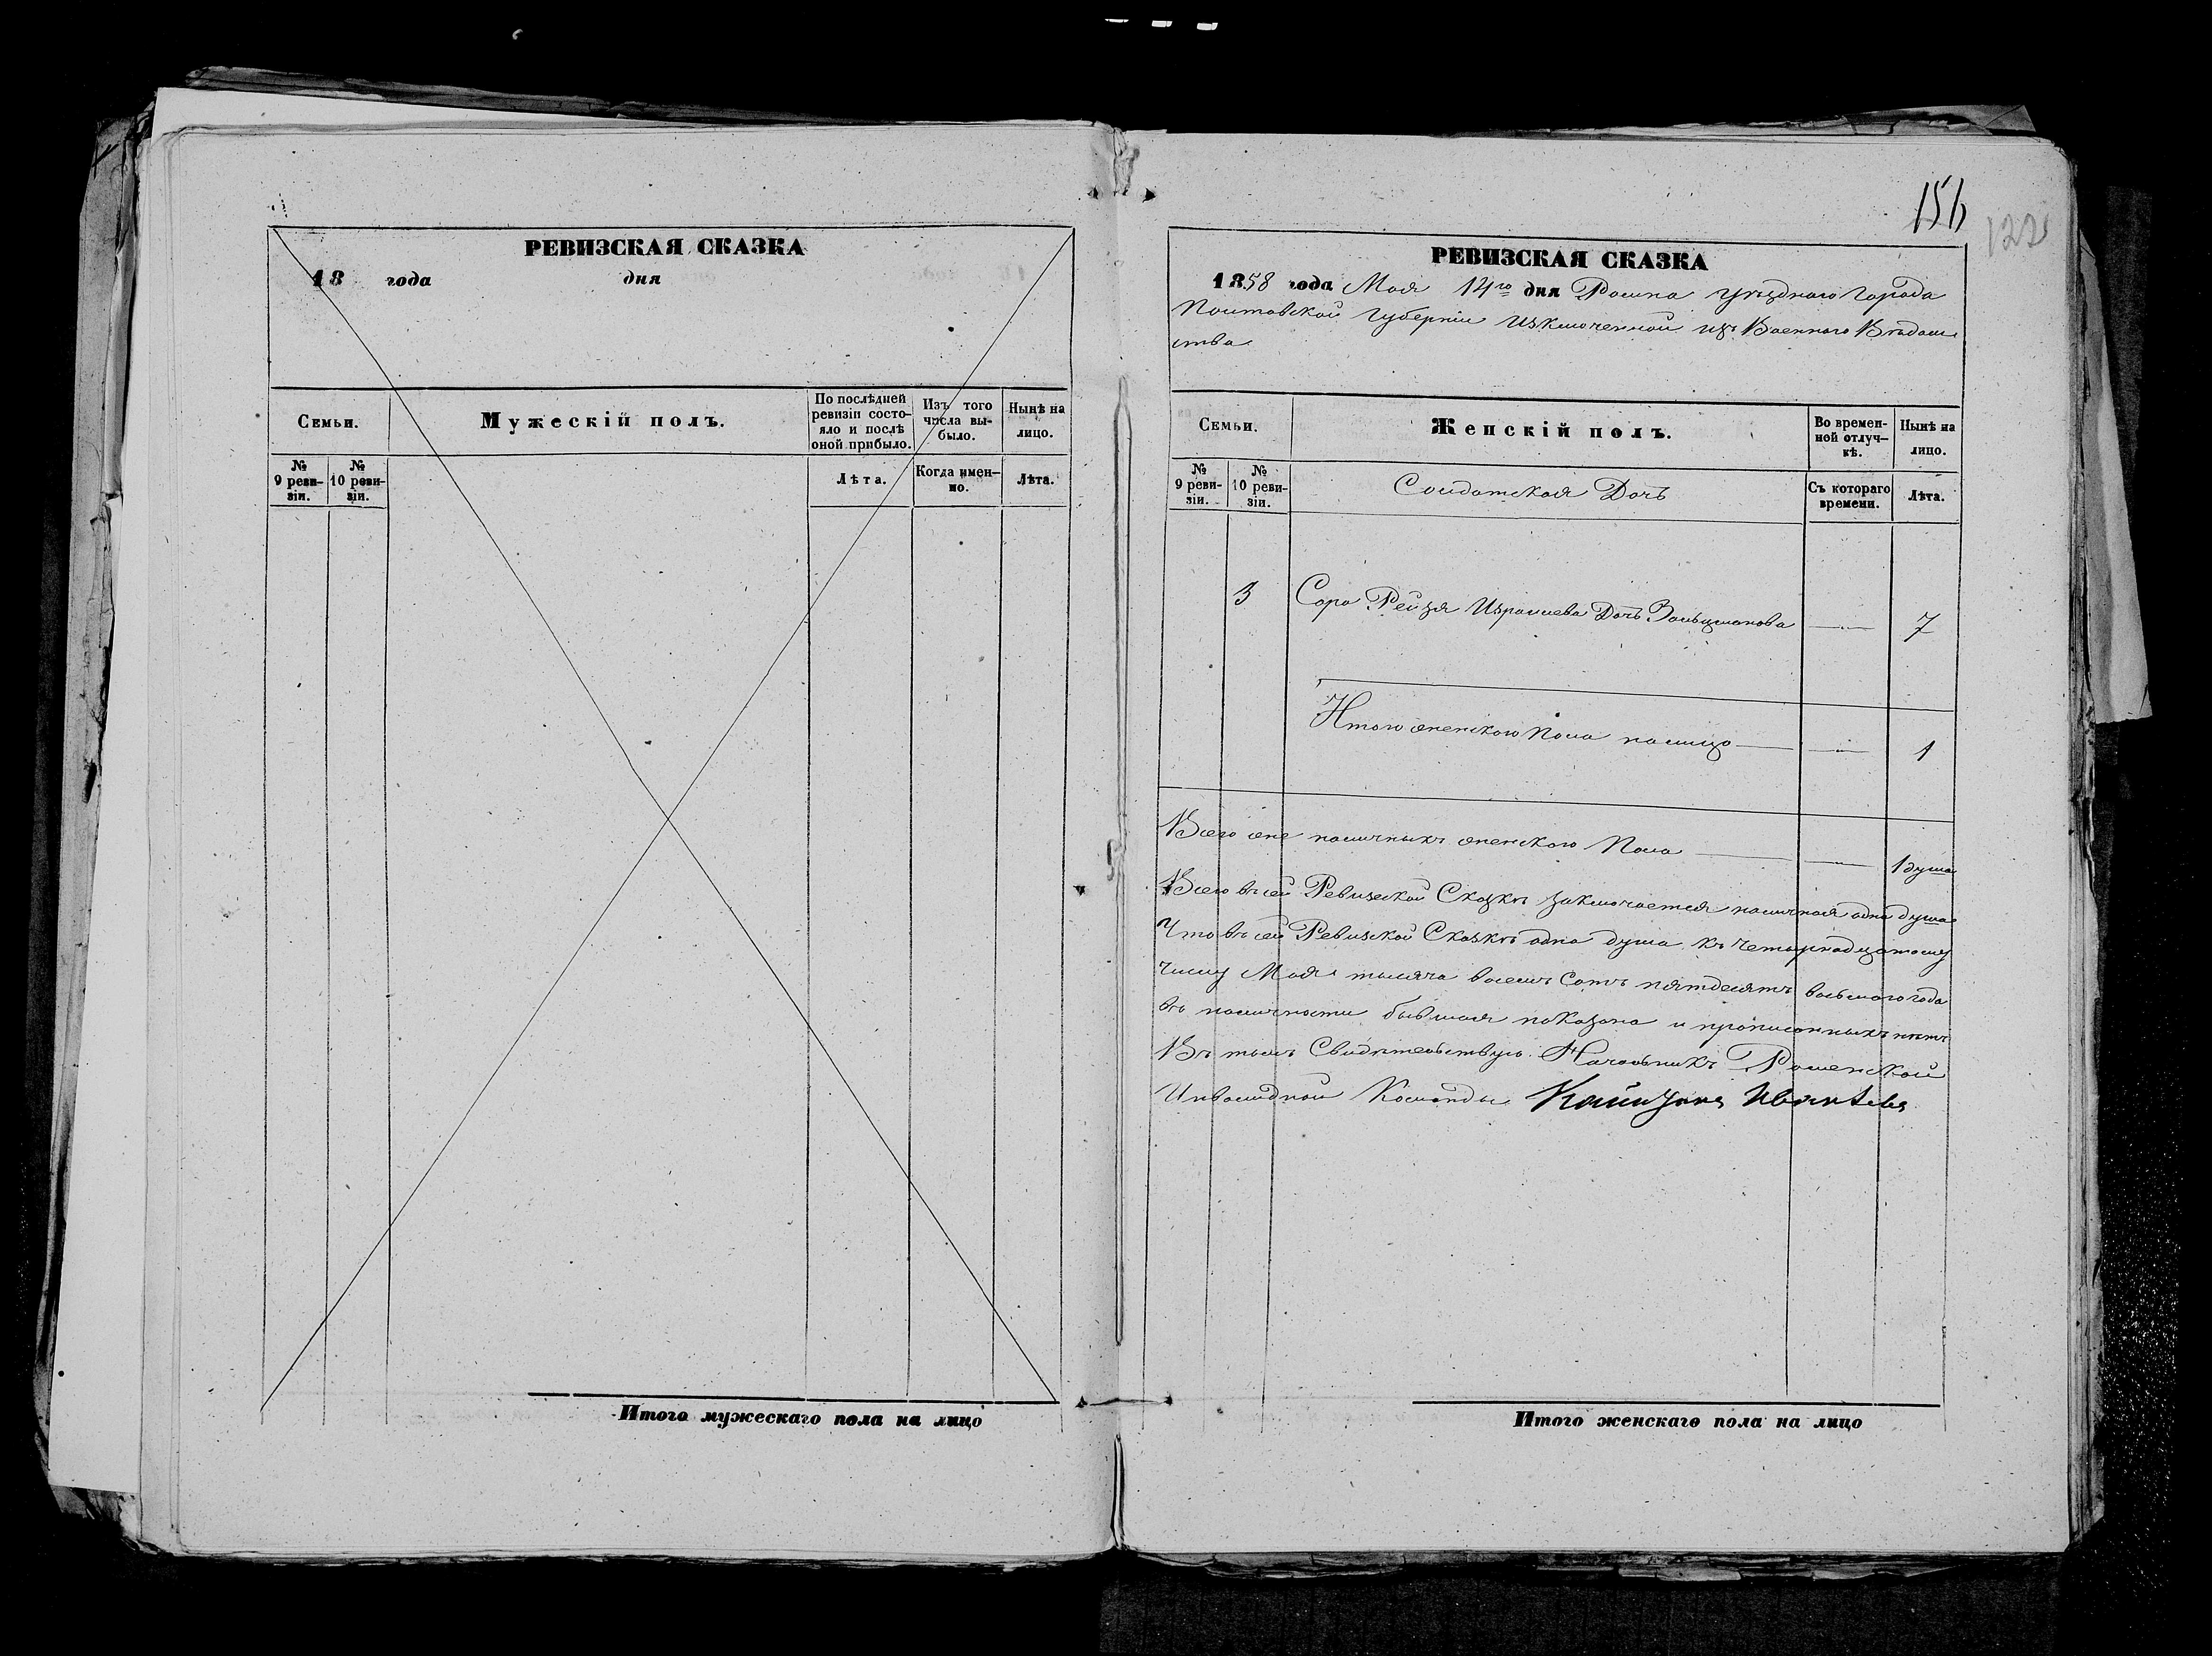 РЕВИЗСКАЯ СКАЗКА
18 года дня
Семьи.
Мужескій полъ.
По послѣдней ревизіи состояло и послѣ оной прибыло.
Изъ того числа выбыло.
Нынѣ на лицо.
№ 9 ревизіи.
№ 10 ревизіи.
Лѣта.
Когда именно.
Лѣта.
Итого мужескаго пола на лицо
156
122
РЕВИЗСКАЯ СКАЗКА
1858 года Мая 14го дня Ромна уѣзднаго города
Полтавской Губерніи изключенной изъ Военнаго Вѣдом
ства
Семьи.
Женскій полъ.
Во временной отлучкѣ.
Нынѣ на лицо.
№ 9 ревизіи.
№ 10 ревизіи.
Солдатская Дочь
Съ котораго времени.
Лѣта.
3 Сора Рейзя Израилева Дочь Зальцманова — 7
Итого женского пола налицо — — 1
Всего оне наличныхъ женского Пола — — 1 душа
Всего въ сей Ревизской Сказкѣ заключается наличная одна душа
Что въ сей Ревизской Сказкѣ одна душа къ четырнадцатому
числу Мая тысяча восемь Сотъ пятдесятъ восьмого года
въ наличности бывшая показана и прописанныхъ нѣтъ
Въ томъ Свидѣтельствую. Начальникъ Роменской
Инвалидной Команды
Итого женскаго пола на лицо